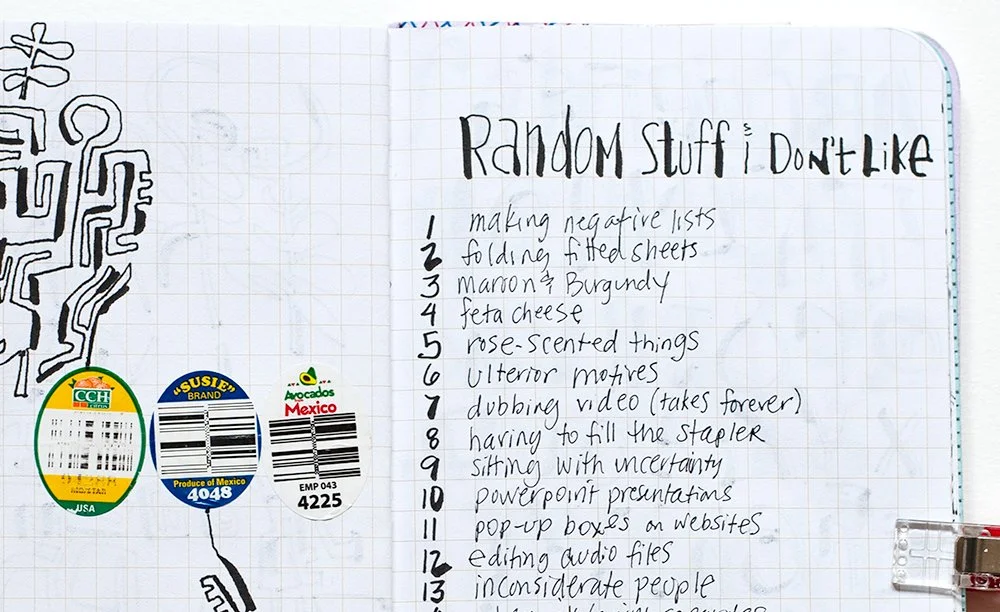 Random Stuff & i Don't Like
1 making negative lists
2 folding fitted sheets
3 maroon & Burgundy
4 feta cheese
5 rose-scented things
6 ulterior motives
7 dubbing video (takes forever)
8 having to fill the stapler
9 sitting with uncertainty
10 powerpoint presentations
11 pop-up boxes on websites
12 editing audio files
13 inconsiderate people
CCH
USA
"SUSIE"
BRAND
Produce of Mexico
4048
Avocados
from
Mexico
EMP 043
4225